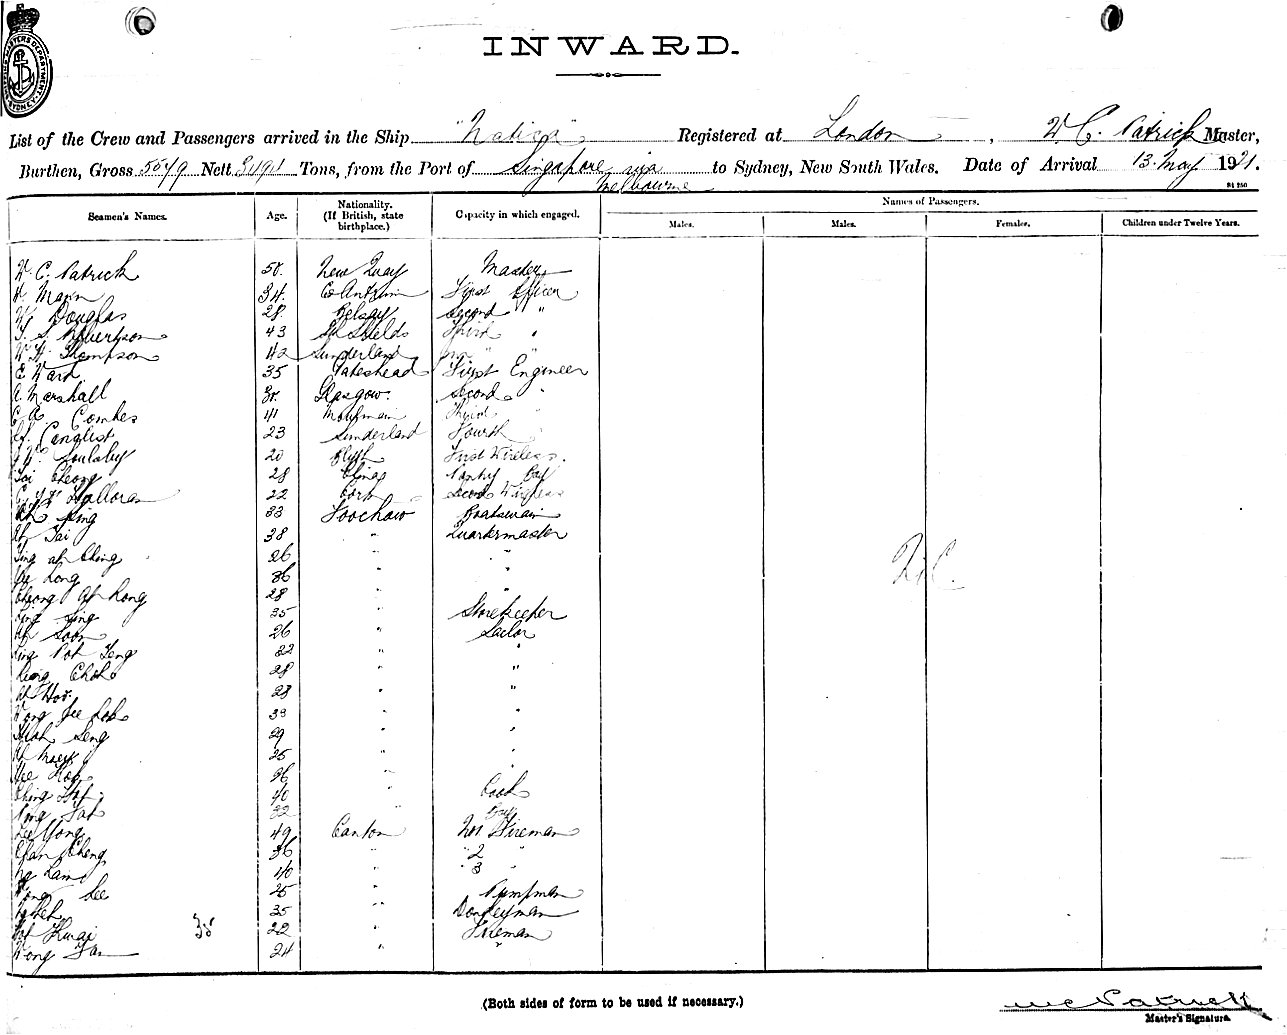 INWARD.
List of the Crew and Passengers arrived in the Ship "Natica" Registered at London, W. C. Patrick Master,
Burthen, Gross 5579 Nett Tons, from the Port of Singapore via Melbourne to Sydney, New South Wales. Date of Arrival 13 May 1921.
Seamen's Names. Age. Nationality. (If British, state birthplace.) Capacity in which engaged. Names of Passengers.
Males. Males. Females. Children under Twelve Years.
W. C. Patrick 50. New Quay Master
Mann 34. Co Antrim First Officer
W. Douglas 28. Belsay Second "
S. Robertson 43 Sth Shields Third "
W. H. Thompson 42 Sunderland
E. Ward 35 Gateshead First Engineer
A. Marshall Glasgow. Second "
C A Combes 41 Third "
23 Sunderland Fourth
20 Blyth First Wireless.
Tai Cheong 28 China Pantry Boy
Halloran 22 Cork Second Wireless
Ah King 33 Foochow Boatswain
Ah Tai 38 " Quartermaster
Ting ah Ching 26 " "
Long 36 " "
Cheong Ah Kong 28 " "
Ling Sing 35 " Storekeeper
Ah Soon 26 " Sailor
Ling Poh Teng 32 " "
Cheh 28 " "
Ah Hoi 28 " "
Wong Jee 39 " "
Seng 29 " "
Ah 25 " "
Yee Hop 26 " "
Ching 40 " Cook
32 " Boy
Lee Yong 49 Canton No1 Fireman
Chan Cheng 36 " "2 "
Ng Lam 40 " "3 "
Wong See 25 " Pumpman
35 " Donkeyman
Kwai 22 " Fireman
Wong 24 " "
35
Nil.
(Both sides of form to be used if necessary.)
W C Patrick
Master's Signature.